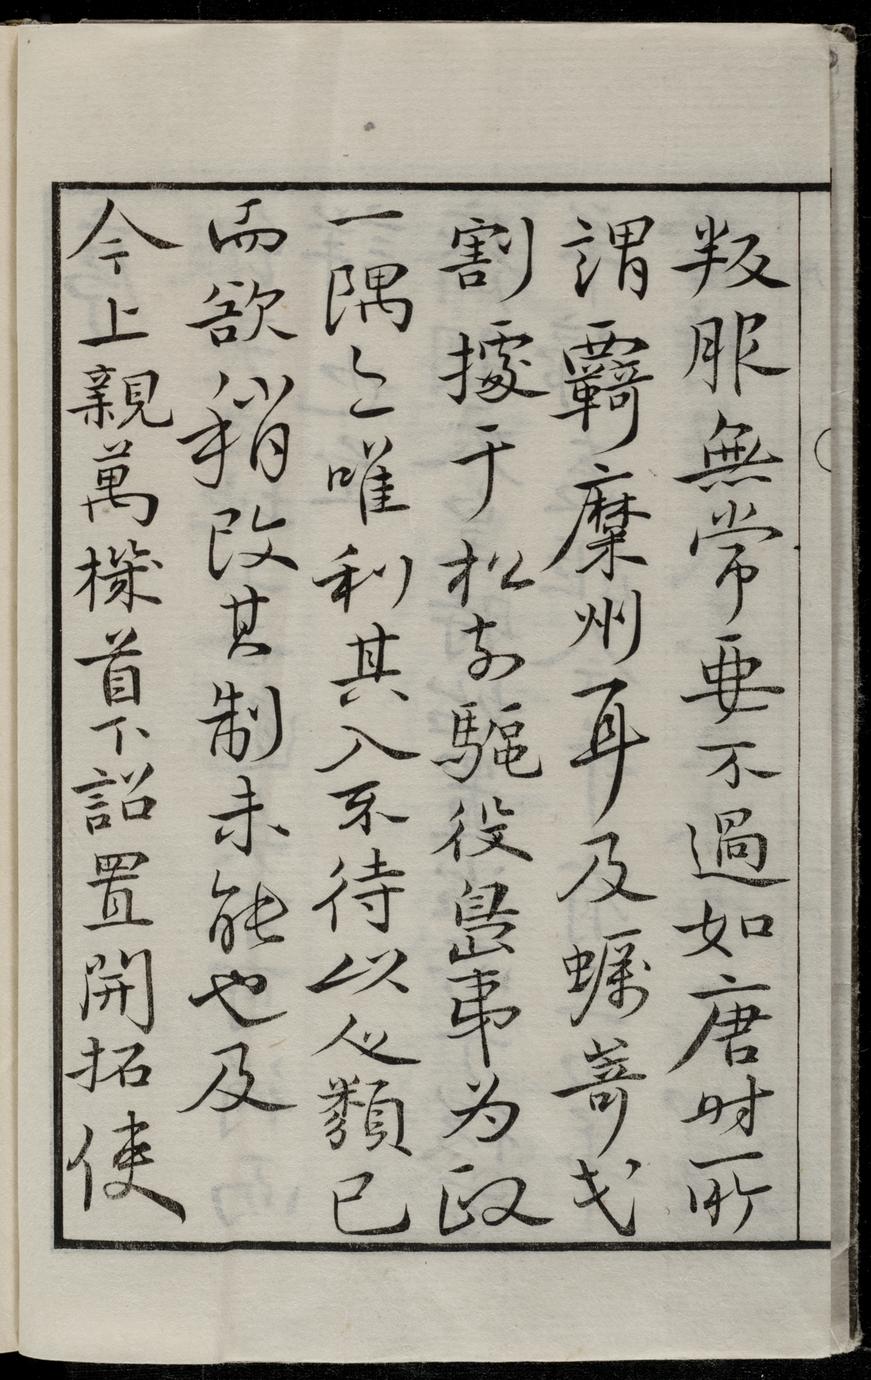 叛服無常要不過如唐時所
謂覊縻州耳及蠣嵜氏
割據于松前驅役島夷为政
一隅之唯利其入不待以人類已
而欲稍改其制未能也及
今上親萬機首下詔置開拓使